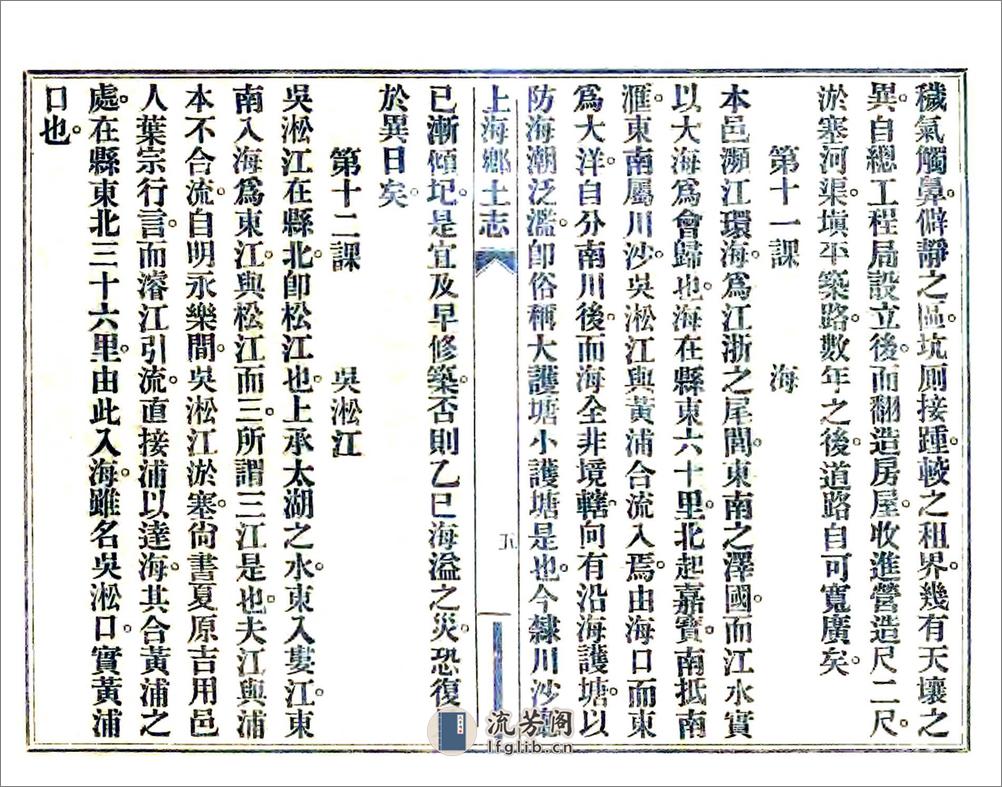 穢氣觸鼻僻靜之區。坑厠接踵。較之租界。幾有天壤之
異。自總工程局設立後。而翻造房屋。收進營造尺二尺。
淤塞河渠。塡平築路。數年之後。道路自可寬廣矣。
第十一課　海
本邑瀕江環海。爲江浙之尾閭。東南之澤國。而江水實
以大海爲會歸也。海在縣東六十里。北起嘉寶。南抵南
滙。東南屬川沙。吳淞江與黃浦合流入焉。由海口而東
爲大洋。自分南川後。而海全非境轄。向有沿海護塘。以
防海潮泛濫。卽俗稱大護塘小護塘是也。今隸川沙
上海鄉土志
五
已漸傾圮。是宜及早修築。否則乙巳海溢之災。恐復
於異日矣。
第十二課　吳淞江
吳淞江在縣北。卽松江也。上承太湖之水。東入婁江。東
南入海爲東江。與松江而三。所謂三江是也。夫江與浦
本不合流。自明永樂間。吳淞江淤塞。尙書夏原吉用邑
人葉宗行言。而濬江引流。直接浦以達海。其合黃浦之
處。在縣東北三十六里。由此入海。雖名吳淞口。實黃浦
口也。
流芳阁
lfglib.cn